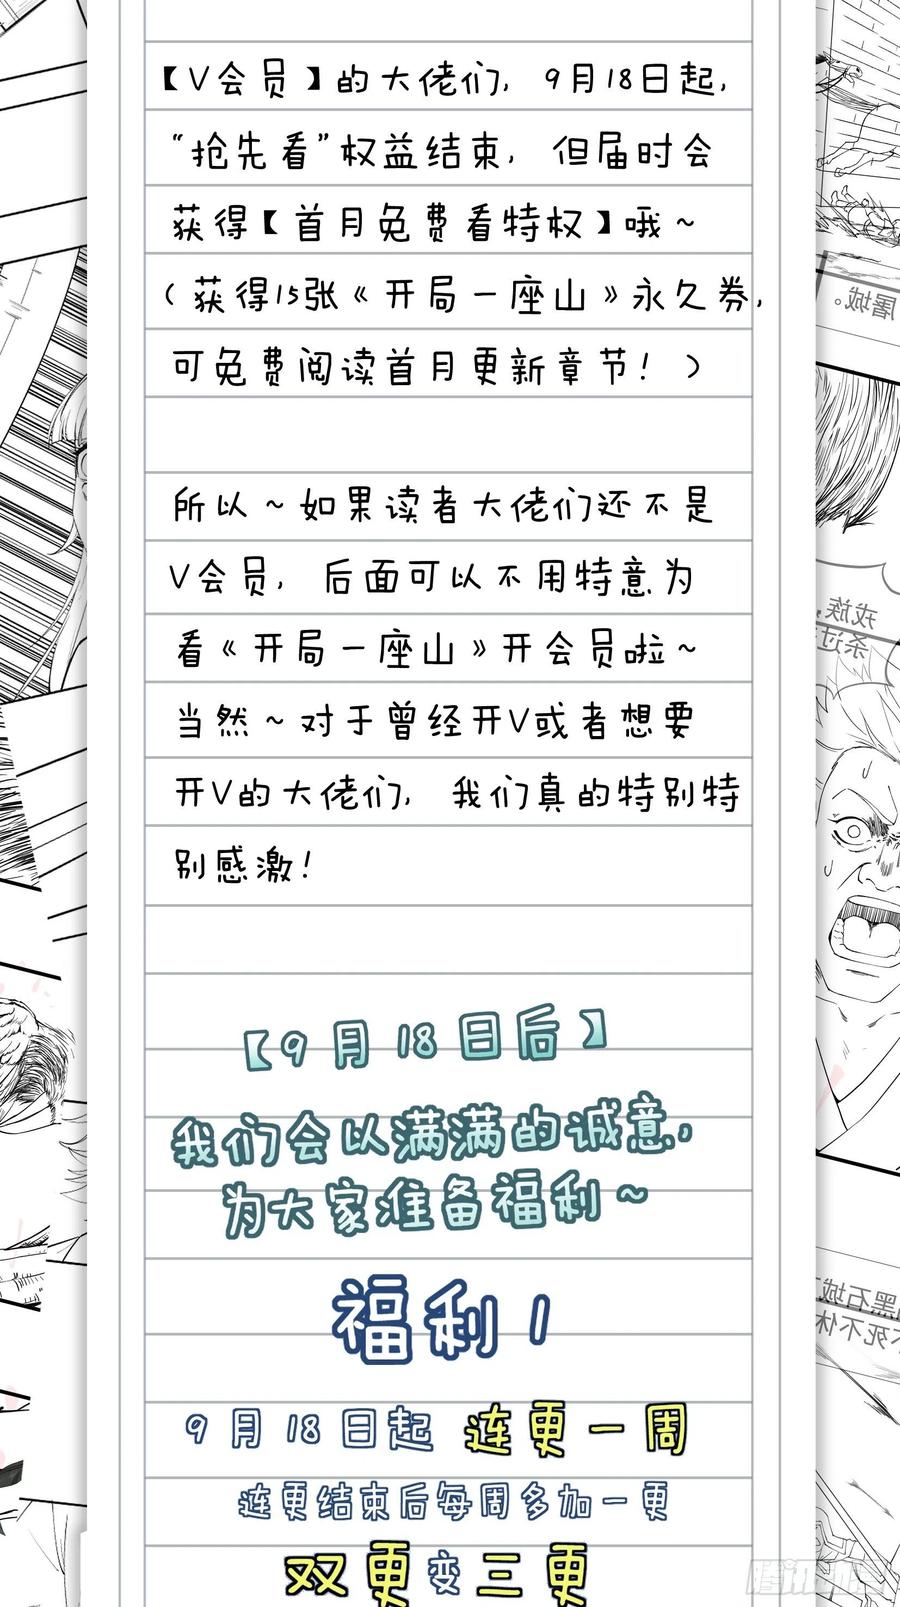 【V会员】的大佬们，9月18日起，
“抢先看”权益结束，但届时会
获得【首月免费看特权】哦~
（获得15张《开局一座山》永久券，
可免费阅读首月更新章节！）
所以~如果读者大佬们还不是
V会员，后面可以不用特意为
看《开局一座山》开会员啦~
当然~对于曾经开V或者想要
开V的大佬们，我们真的特别特
别感激！
【9月18日后】
我们会以满满的诚意，
为大家准备福利~
福利1
9月18日起 连更一周
连更结束后每周多加一更
双更变三更
屠城。
戎族，
杀过
黑石城
不死不休
腾讯动漫